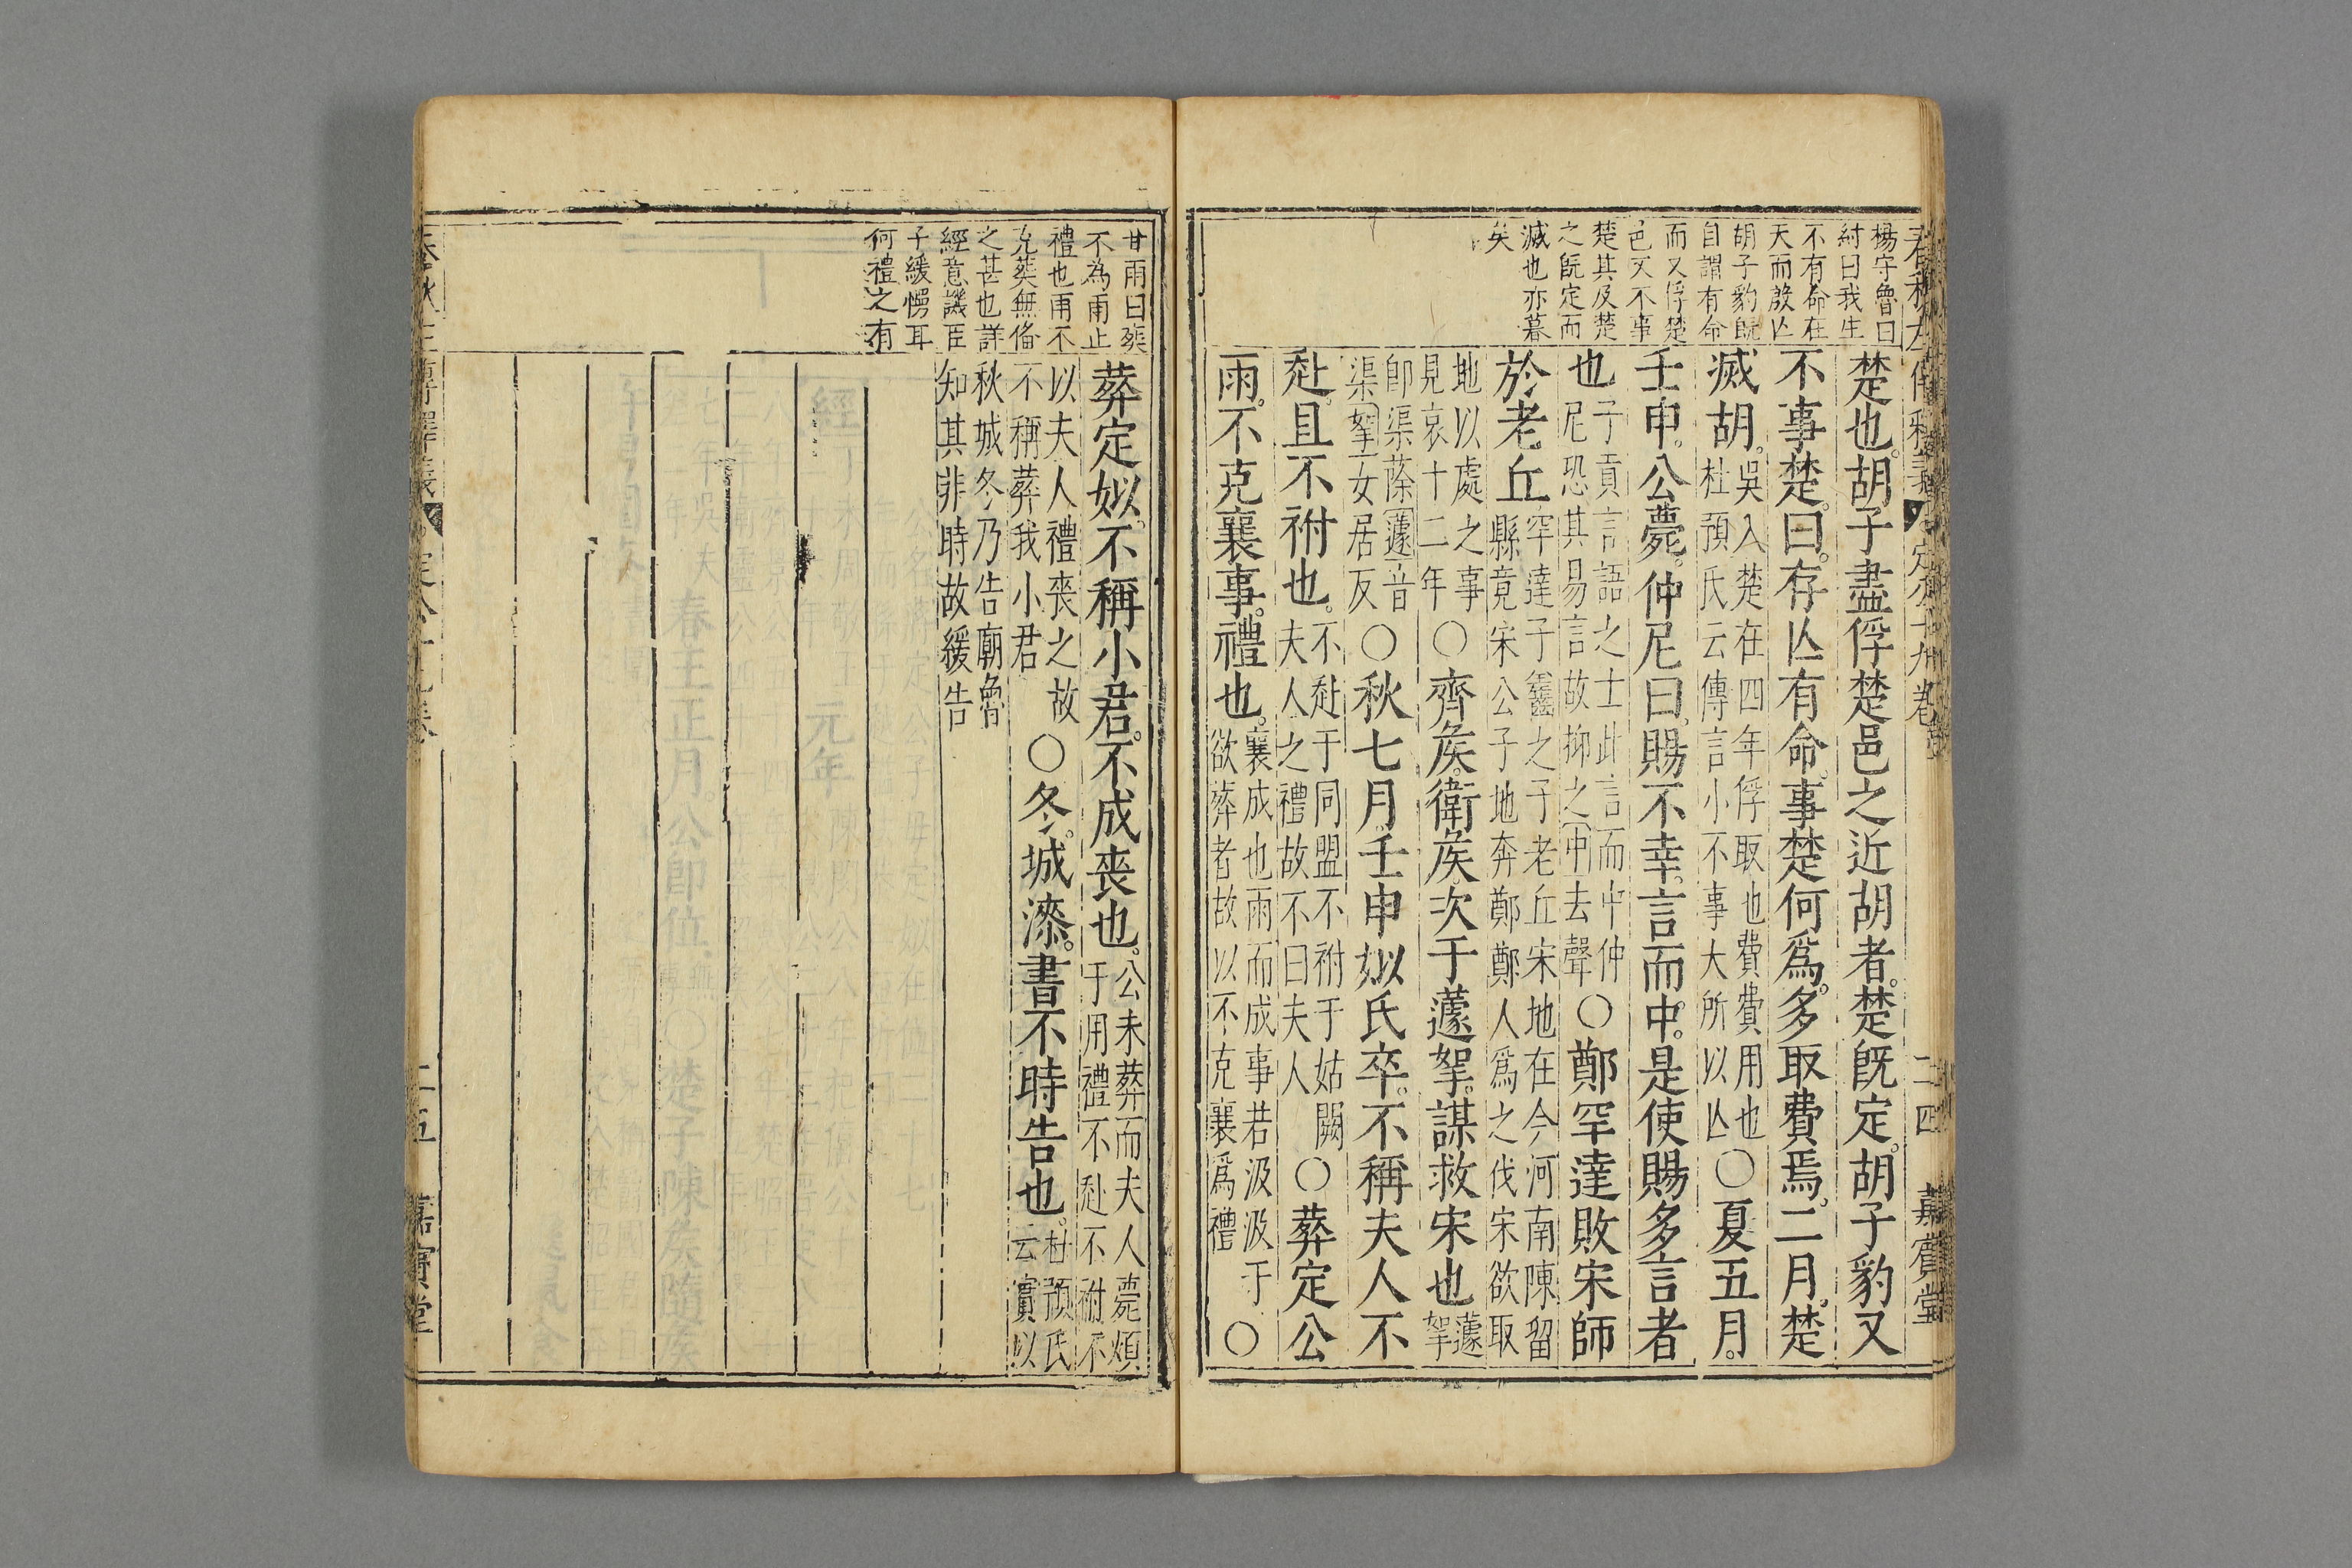 楊守魯曰
紂曰我生
不有命在
天而殷亾
胡子豹旣
自謂有命
而又俘楚
邑又不事
楚其及楚
之旣定而
滅也亦暮
矣
楚也。胡子盡俘楚邑之近胡者。楚旣定。胡子豹又
不事楚。曰。存亾有命。事楚何爲。多取費焉。二月。楚
滅胡。吳入楚在四年俘取也費費用也杜預氏云傳言小不事大所以亾〇夏五月。
壬申。公薨。仲尼曰。賜不幸。言而中。是使賜多言者
也子貢言語之士此言而中仲尼恐其易言故抑之中去聲〇鄭罕達敗宋師
於老丘罕達子齹之子老丘宋地在今河南陳留縣竟宋公子地奔鄭鄭人爲之伐宋欲取
地以處之事見哀十二年〇齊矦。衛矦。次于蘧挐。謀救宋也蘧挐
卽渠蒢蘧音渠挐女居反〇秋七月。壬申。姒氏卒。不稱夫人。不
赴。且不祔也。不赴于同盟不祔于姑闕夫人之禮故不曰夫人〇葬定公
雨。不克襄事。禮也。襄成也雨而成事若汲汲于欲葬者故以不克襄爲禮〇
二四 嘉賓堂
甘雨曰葬
不為雨止
禮也雨不
克葬無俻
之甚也詳
經意譏臣
子緩愕耳
何禮之有
葬定姒。不稱小君。不成喪也。公未葬而夫人薨煩于用禮不赴不祔不
以夫人禮喪之故不稱葬我小君〇冬。城漆。書不時告也。杜預氏云實以
秋城冬乃告廟魯知其非時故緩告
二五 嘉賓堂